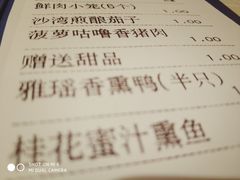 鲜肉小笼(6个) 1.00
沙湾煎酿茄子 1.00
菠萝咕噜香猪肉 1.00
赠送甜品 1.00
雅瑶香熏鸭(半只) 1.00
桂花蜜汁熏鱼
SHOT ON MI 6
MI DUAL CAMERA